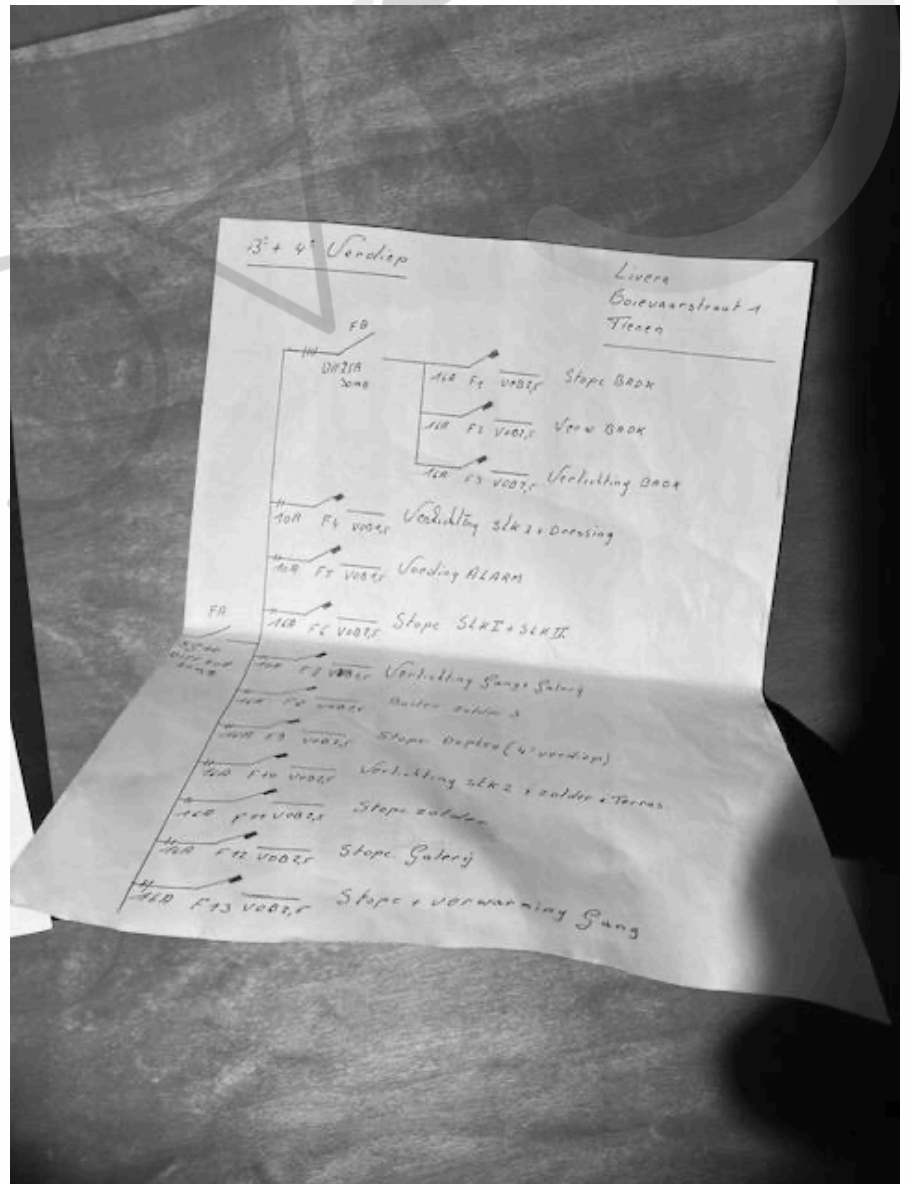 3e + 4e Verdiep
Livera
Tienen
FB
Diff 25A
30mA
16A F1 VOB2,5 Stopc BADK
16A F2 VOB2,5 Verw BADK
16A F3 VOB2,5 Verlichting BADK
10A F4 VOB1,5 Verlichting SLK 2 + Dressing
10A F5 VOB1,5 Voeding ALARM
16A F6 VOB2,5 Stopc SLK I + SLK II
FA
10A F7 Verlichting Gang + Galerij
16A F8 VOB2,5 zolder
16A F9 VOB2,5 Stopc Duplex (4e verdiep)
16A F10 VOB2,5 Verlichting SLK 2 + zolder + Terras
16A F11 VOB2,5 Stopc zolder
16A F12 VOB2,5 Stopc Galerij
16A F13 VOB2,5 Stopc + verwarming Gang